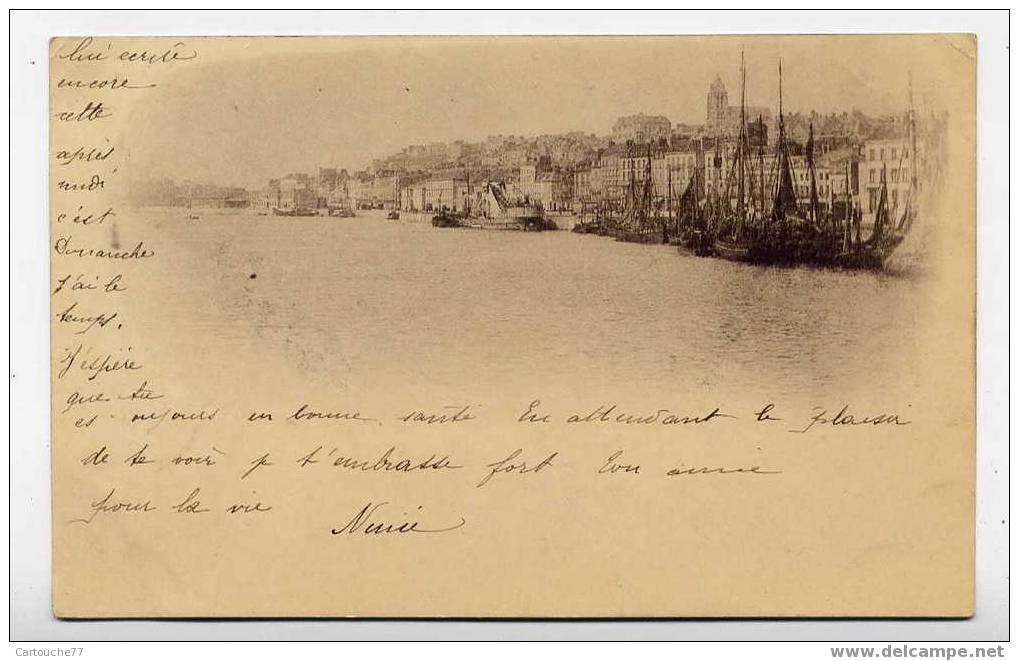 lui ecrire
encore
cette
après
midi
c'est
Dimanche
j'ai le
temps.
J'éspère
que tu
es toujours en bonne santé En attendant le plaisir
de te voir je t'embrasse fort Ton amie
pour la vie
Ninie
Cartouche77
www.delcampe.net